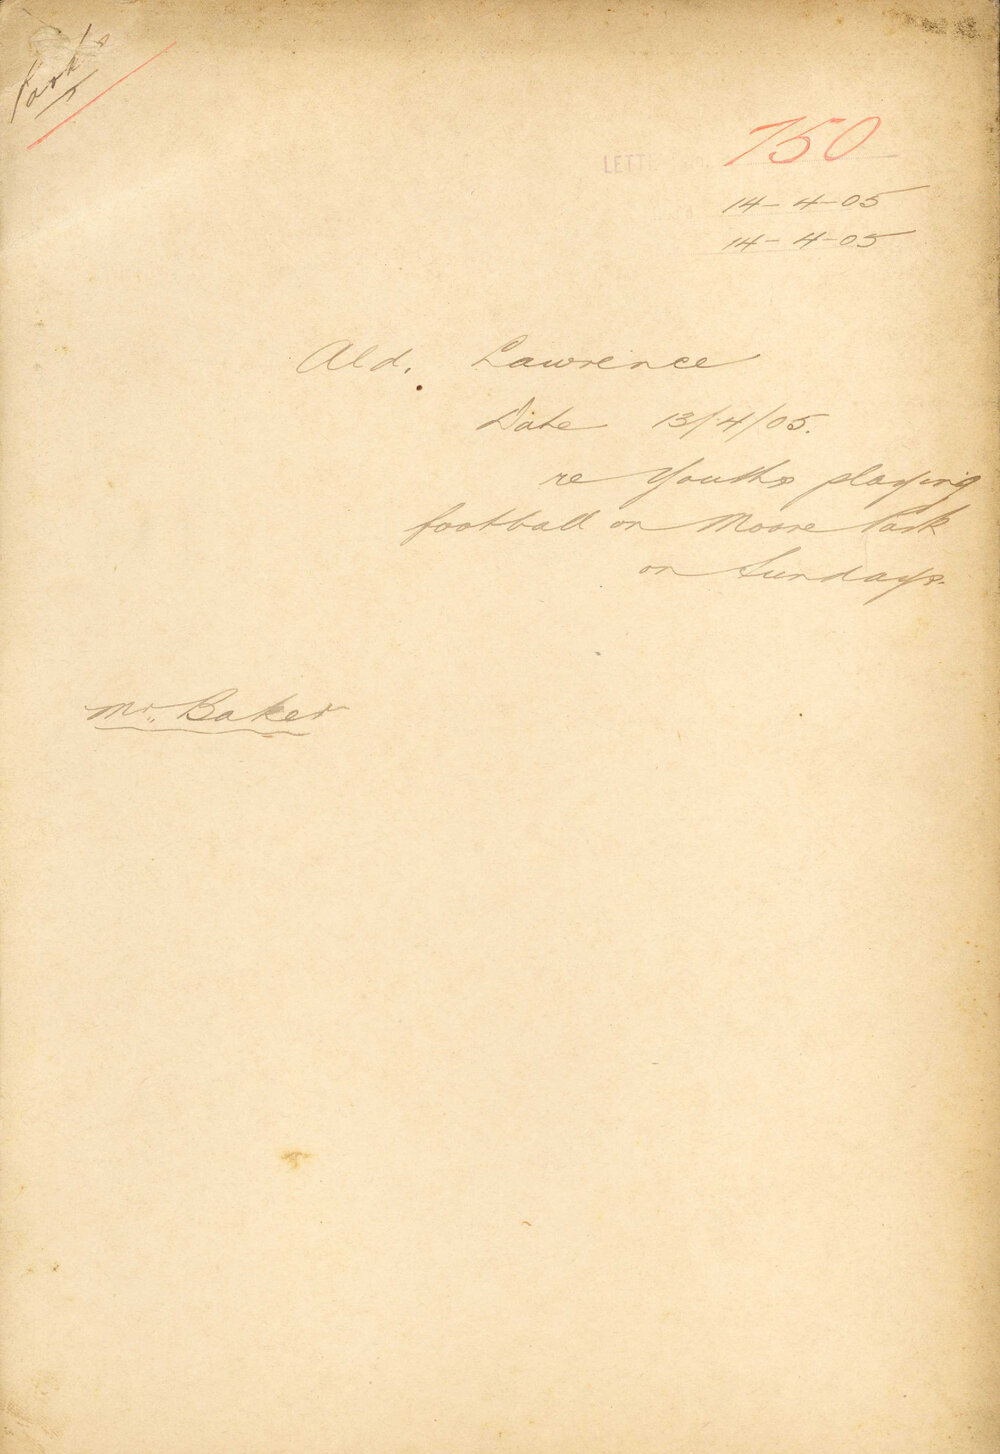 Parks
LETTER No. 750
14-4-05
14-4-05
Ald. Lawrence
Date 13/4/05.
re Youths playing
football on Moore Park
on Sundays.
Mr. Baker